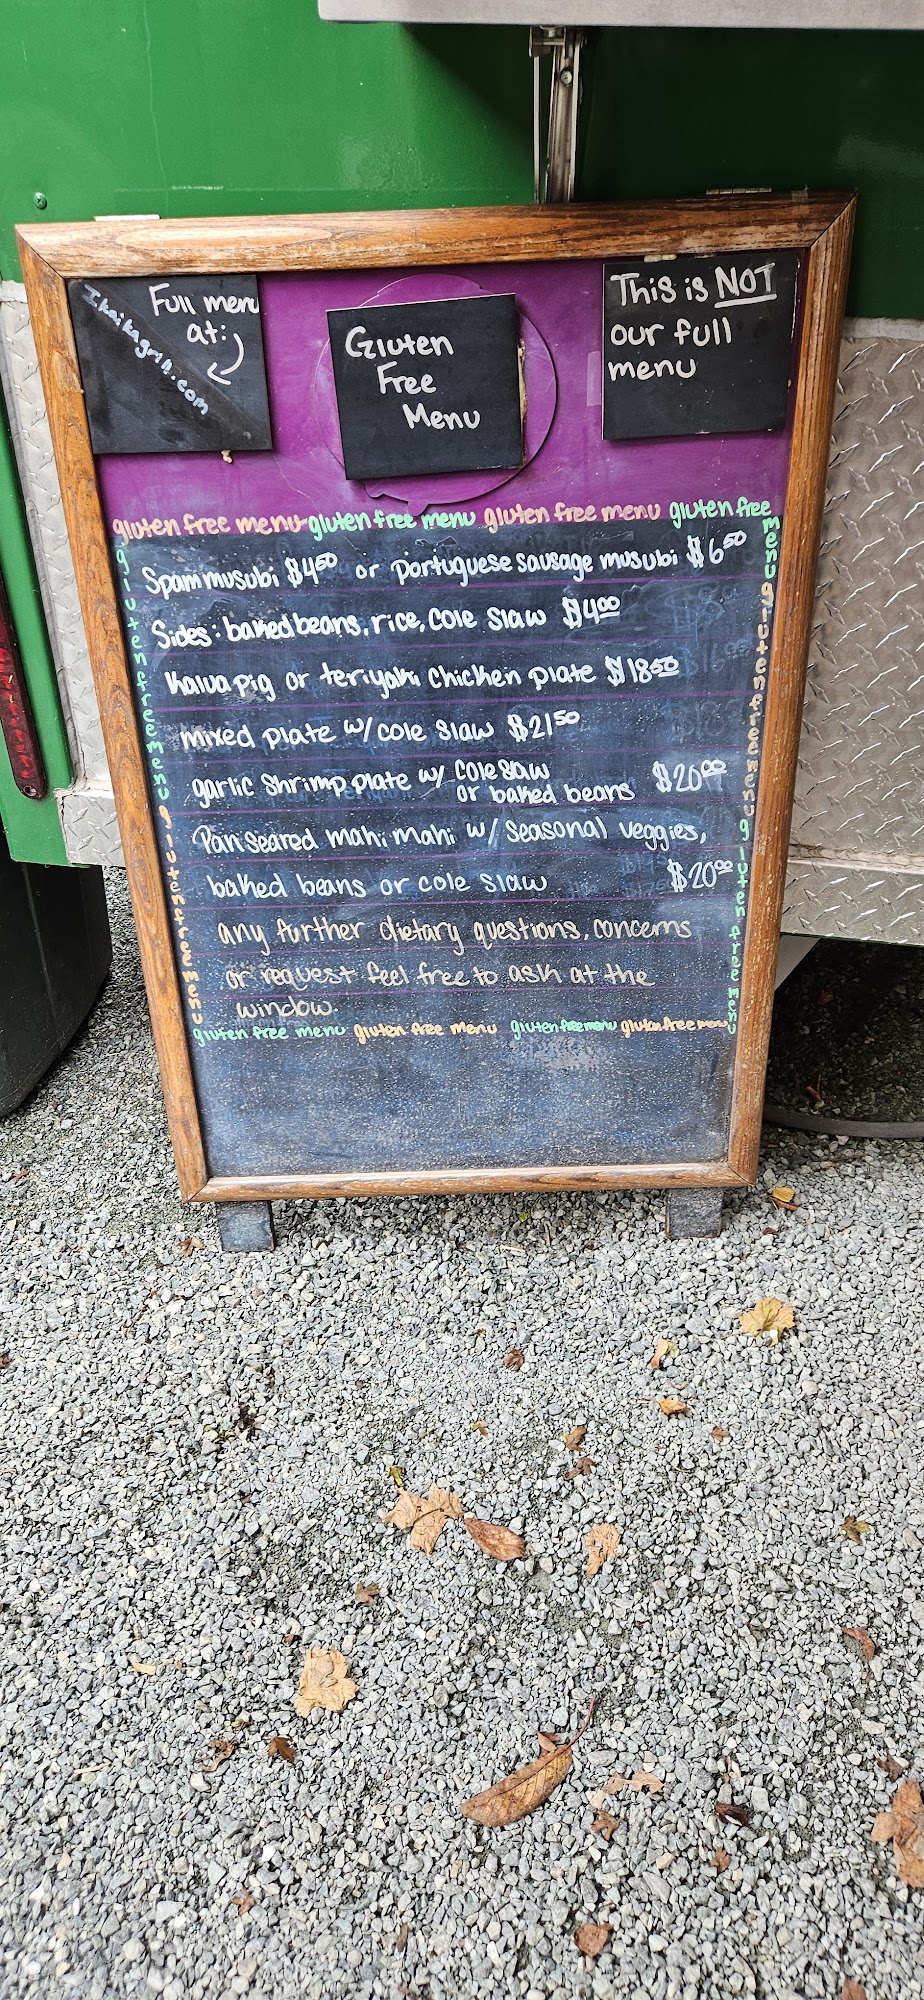 Full menu
at:
Ikaikagrill.com
Gluten
Free
Menu
This is NOT
our full
menu
gluten free menu gluten free menu gluten free menu gluten free
menu gluten free menu gluten free menu
gluten free menu gluten free menu
Spam musubi $4.50 or portuguese sausage musubi $6.50
Sides: baked beans, rice, cole slaw $4.00
kalua pig or teriyaki chicken plate $18.50
mixed plate w/ cole slaw $21.50
garlic shrimp plate w/ cole slaw
or baked beans $20.00
Pan seared mahi mahi w/ seasonal veggies,
baked beans or cole slaw $20.00
any further dietary questions, concerns
or request feel free to ask at the
window.
gluten free menu gluten free menu gluten free menu gluten free menu